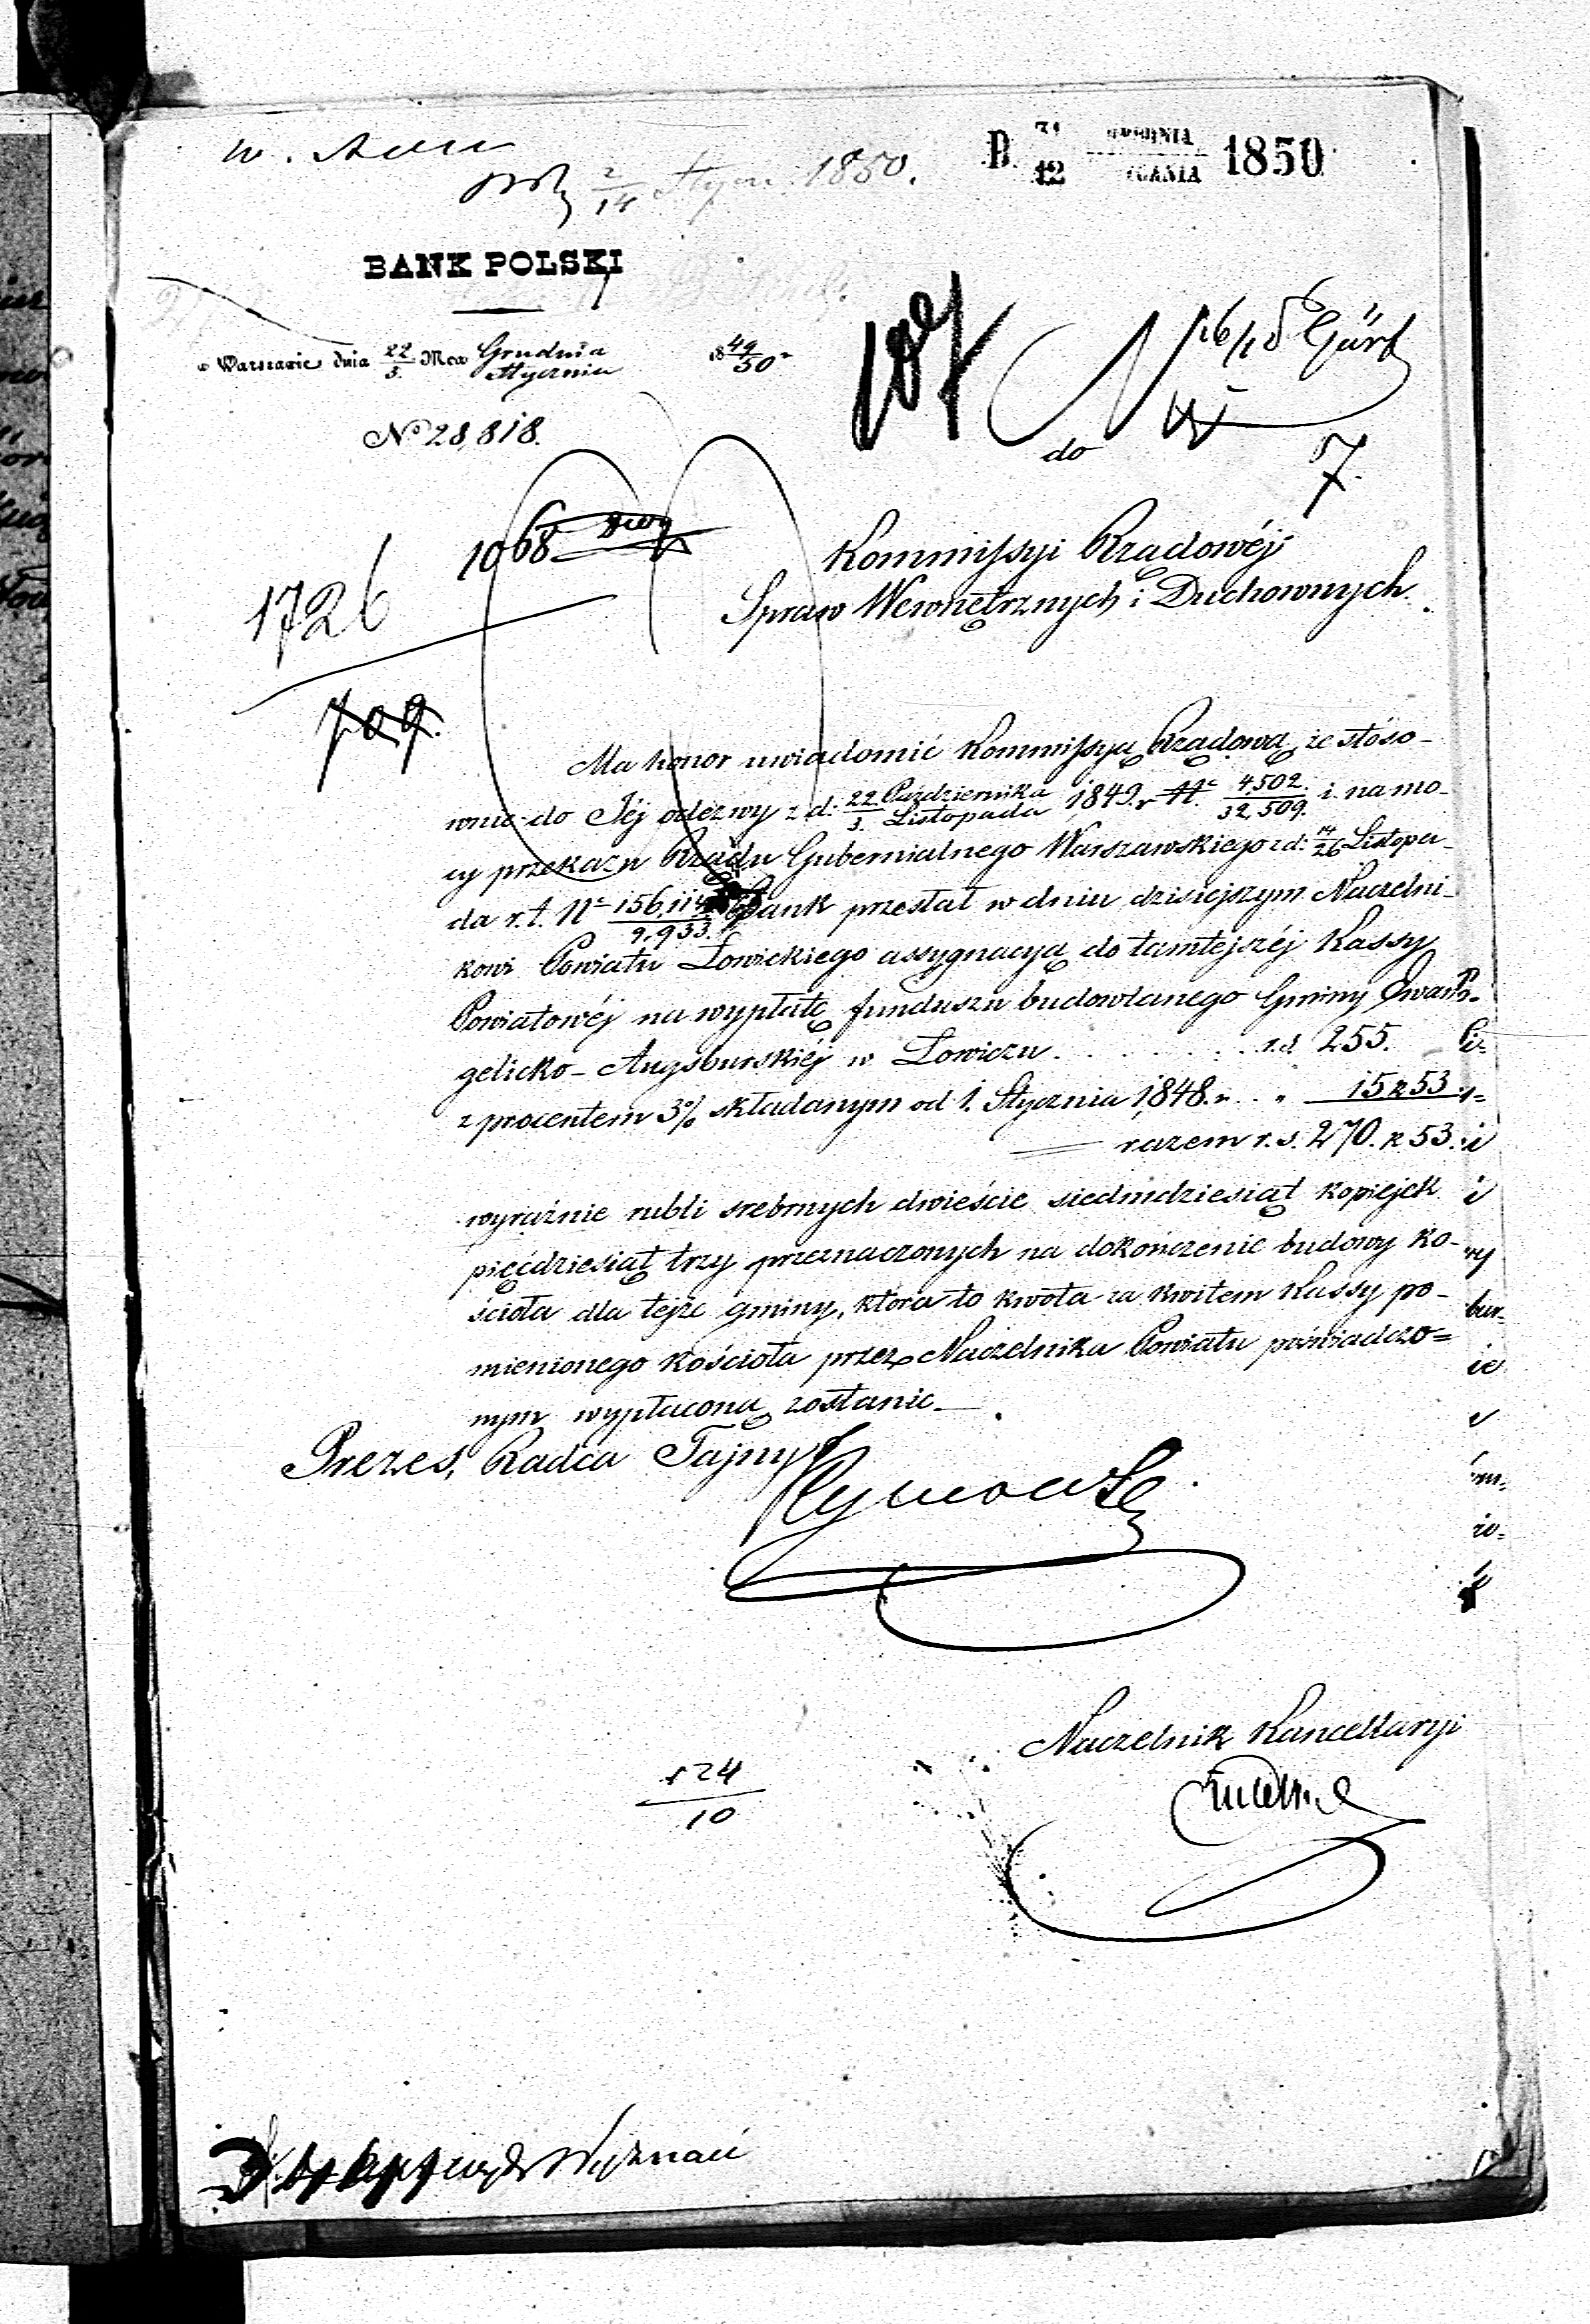 B. 31/12 GRUDNIA/ 1850
2/14 Stycz 1850.
BANK POLSKI
w Warszawie dnia 22/3. Mca Grudnia/Stycznia 18 49/50 r
No 28,818.
107
do
7.
1068
1726
709.
Kommissyi Rządowéj
Spraw Wewnętrznych i Duchownych.
Ma honor uwiadomić Kommissyą Rządową, że stóso-
wnie do Jéj odezwy z d. 22. Października/3. Listopada 1849. r No 4,502./32,509. i na mo-
cy przekazu Rządu Gubernialnego Warszawskiego z d: 14/26 Listopa-
da r. t. No 156,114/9,933. Bank przesłał w dniu dzisiejszym Naczelni-
kowi Powiatu Łowickiego assygnacyą do tamtejszéj Kassy
Powiatowéj na wypłatę funduszu budowlanego Gminy Ewan-
gelicko-Augsburskiéj w Łowiczu . . . . . . r.s. 255.
z procentem 3% składanym od 1. Stycznia 1848. r. . . " 15 k 53
razem r. s. 270. k 53.
wyraźnie rubli srebrnych dwieście siedmdziesiąt kopiejek
pięćdziesiąt trzy przeznaczonych na dokończenie budowy ko-
ścioła dla tejże gminy, która to kwota za kwitem Kassy po-
mienionego kościoła przez Naczelnika Powiatu poświadczo=
nym wypłaconą zostanie.
Prezes, Radca Tajny
Naczelnik Kancellaryi
124/10
Wyznań